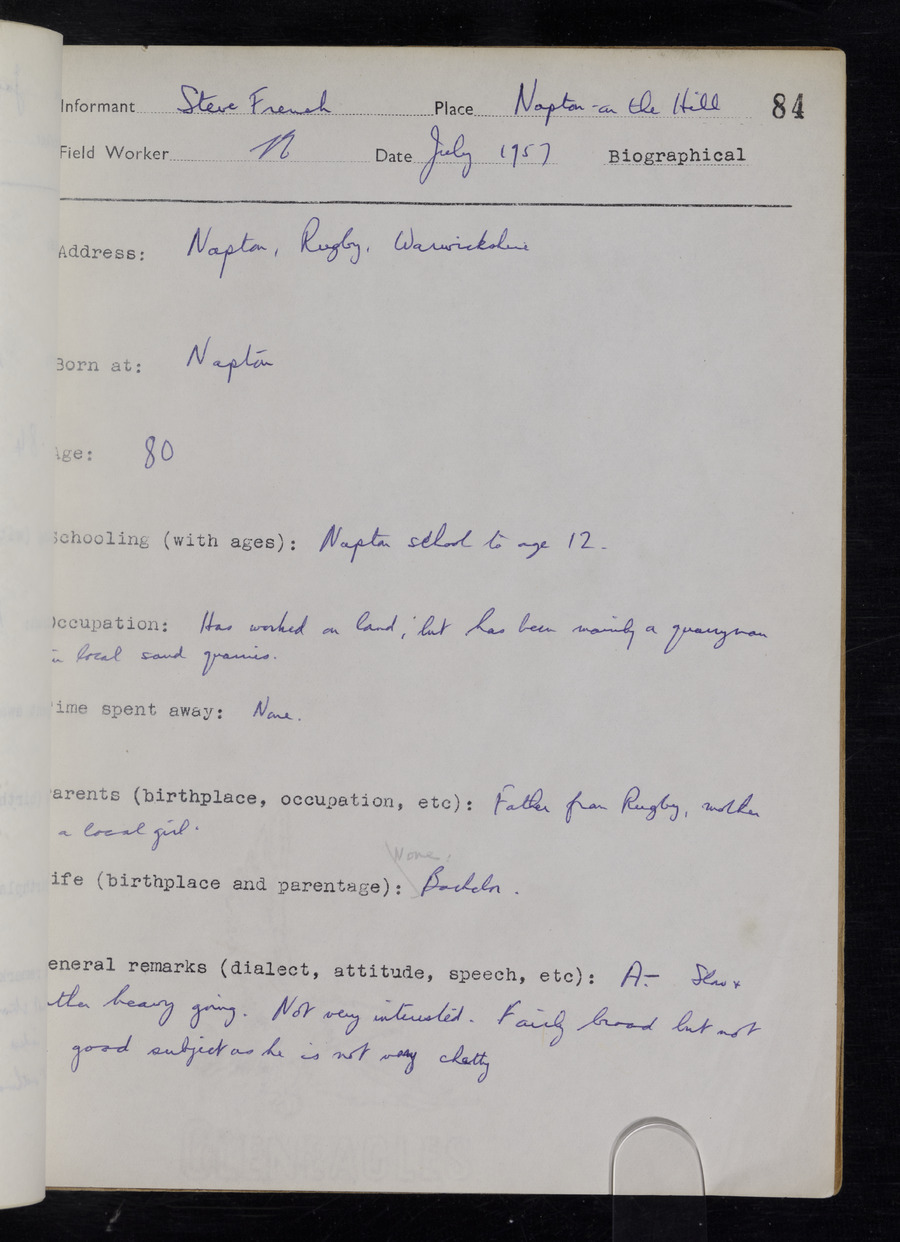 Informant Steve French Place Napton-on the Hill 84
Field Worker Date July 1957 Biographical
Address: Napton, Rugby, Warwickshire
Born at: Napton
Age: 80
Schooling (with ages): Napton school to age 12.
Occupation: Has worked on land, but has been mainly a quarryman
in local sand quarries.
ime spent away: None.
arents (birthplace, occupation, etc): Father from Rugby, mother
a local girl.
None.
ife (birthplace and parentage): Bachelor.
eneral remarks (dialect, attitude, speech, etc): A- Slow +
ther heavy going. Not very interested. Fairly broad but not
good subject as he is not very chatty